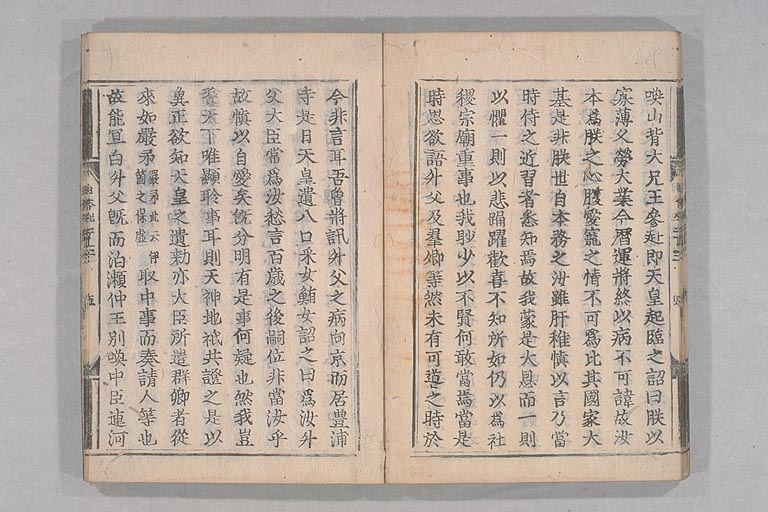 喚山背大兄王參赴即天皇起臨之詔曰朕以
寡薄久勞大業今曆運將終以病不可諱故汝
本爲朕之心腹愛寵之情不可爲比其國家大
基是非朕世自本務之汝雖肝稚愼以言乃當
時侍之近習者悉知焉故我蒙是大恩而一則
以懼一則以悲踊躍歡喜不知所如仍以爲社
稷宗廟重事也我眇少以不賢何敢當焉當是
時思欲語舛父及羣卿等然未有可噵之時於
今非言耳吾曾將訊舛父之病向京而居豊浦
寺是日天皇遺八口釆女鮪女詔之曰爲汝舛
父大臣常爲汝愁言百歲之後嗣位非當汝乎
故愼以自愛矣旣分明有是事何疑也然我豈
餮天下唯顯聆事耳則天神地祇共證之是以
冀正欲知天皇之遺勅亦大臣所遣群卿者從
來如嚴矛 嚴矛此云伊箇之倍虛 取中事而奏請人等也
故能冝白舛父旣而泊瀬仲王別喚中臣連河